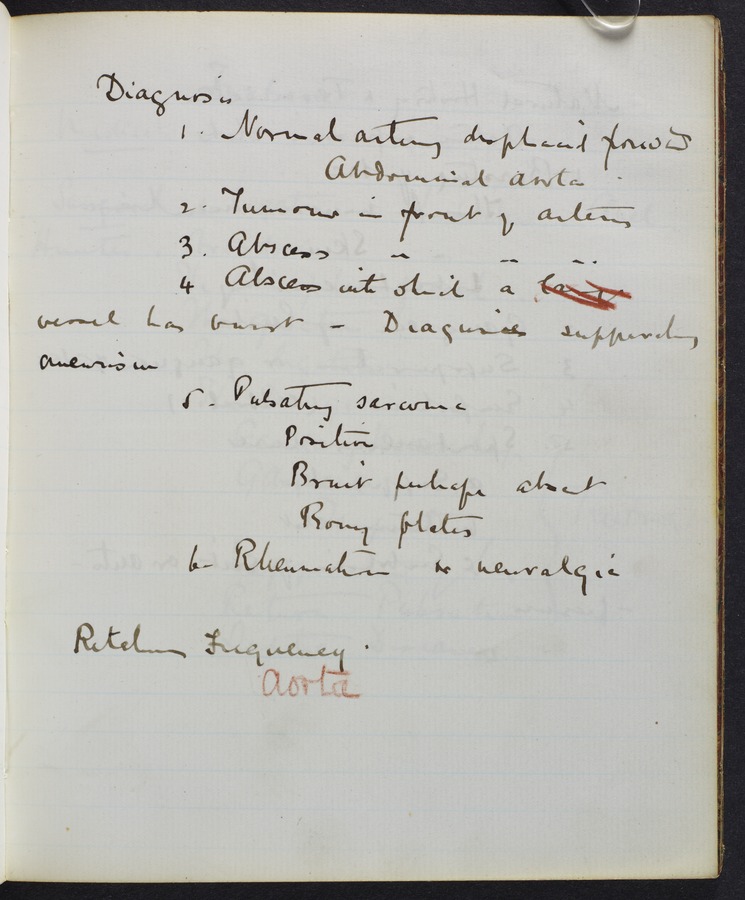 Diagnosis
1. Normal artery displaced forward
Abdominal aorta.
2. Tumour in front of artery
3. Abscess " " "
4 Abscess into which a
vessel has burst - Diagnosis suppurating
aneurism
5. Pulsating sarcoma
Position
Bruit perhaps absent
Bony plates
6- Rheumatism or neuralgia
Relative Frequency.
Aorta